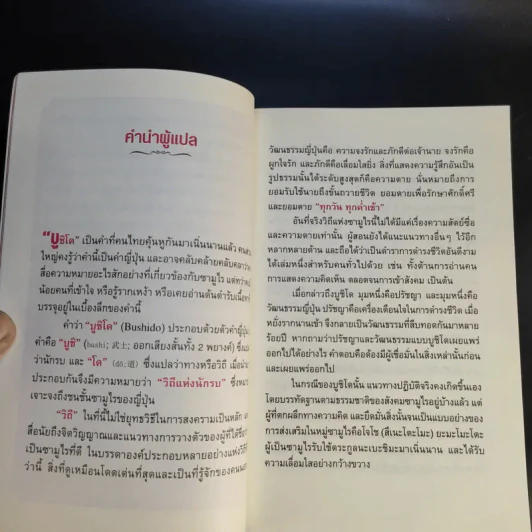 คำนำผู้แปล
"บูชิโด" เป็นคำที่คนไทยคุ้นหูกันมาเนิ่นนานแล้ว คนส่วน
ใหญ่คงรู้ว่าคำนี้เป็นคำญี่ปุ่น และอาจคลับคล้ายคลับคลาว่า
สื่อความหมายอะไรสักอย่างที่เกี่ยวข้องกับซามูไร แต่ทว่า
น้อยคนที่เข้าใจ หรือรู้รากเหง้า หรือเคยอ่านต้นตำรับเนื้อ
บรรจุอยู่ในเบื้องลึกของคำนี้
คำว่า "บูชิโด" (Bushido) ประกอบด้วยตัวคำญี่ปุ่น
คำคือ "บูชิ" (bushi; 武士; ออกเสียงสั้นทั้ง 2 พยางค์) ซึ่งแปล
ว่านักรบ และ "โด" (dō; 道) ซึ่งแปลว่าทางหรือวิถี เมื่อนำ
ประกอบกันจึงมีความหมายว่า "วิถีแห่งนักรบ" ซึ่งหมาย
เจาะจงถึงชนชั้นซามูไรของญี่ปุ่น
"วิถี" ในที่นี้ไม่ใช่ยุทธวิธีในการสงครามเป็นหลัก
สื่อนัยถึงจิตวิญญาณและแนวทางการวางตัวของผู้ที่ได้ชื่อ
เป็นซามูไรที่ดี ในบรรดาองค์ประกอบหลายอย่างแห่งวิถี
ว่านี้ สิ่งที่ดูเหมือนโดดเด่นที่สุดและเป็นที่รู้จักของคนนอก
วัฒนธรรมญี่ปุ่นคือ ความจงรักและภักดีต่อเจ้านาย จงรักคือ
ผูกใจรัก และภักดีคือเลื่อมใสยิ่ง สิ่งที่แสดงความรู้สึกอันเป็น
รูปธรรมนั้นได้ระดับสูงสุดก็คือความตาย นั่นหมายถึงการ
ยอมรับใช้นายถึงขั้นถวายชีวิต ยอมตายเพื่อรักษาศักดิ์ศรี
และยอมตาย "ทุกวัน ทุกค่ำเช้า"
อันที่จริงวิถีแห่งซามูไรนี้ไม่ได้มีแค่เรื่องความสัตย์ซื่อ
และความตายเท่านั้น ผู้สอนยังได้แนะแนวทางอื่นๆ ไว้อีก
หลากหลายด้าน และถือได้ว่าเป็นตำราการดำรงชีวิตอันดีงาม
ได้เล่มหนึ่งสำหรับคนทั่วไปด้วย เช่น ทั้งด้านการอ่านคน
การแสดงความคิดเห็น ตลอดจนการเข้าสังคม เป็นต้น
เมื่อกล่าวถึงบูชิโด มุมหนึ่งคือปรัชญา และมุมหนึ่งคือ
วัฒนธรรมญี่ปุ่น ปรัชญาคือเครื่องเตือนใจในการดำรงชีวิต เมื่อ
หยั่งรากนานเข้า จึงกลายเป็นวัฒนธรรมที่สืบทอดกันมาหลาย
ร้อยปี หากถามว่าปรัชญาและวัฒนธรรมแบบบูชิโดเผยแพร่
ออกไปได้อย่างไร คำตอบคือต้องมีผู้เชื่อมั่นในสิ่งเหล่านั้นก่อน
และเผยแพร่ออกไป
ในกรณีของบูชิโดนั้น แนวทางปฏิบัติจริงคงเกิดขึ้นเอง
โดยบรรทัดฐานตามธรรมชาติของสังคมซามูไรอยู่บ้างแล้ว แต่
ผู้ที่ตกผลึกทางความคิด และยึดมั่นสิ่งนั้นจนเป็นแบบอย่างของ
การส่งเสริมในหมู่ซามูไรคือโจโช (สึเนะโตะโมะ) ยะมะโมโตะ
ผู้เป็นซามูไรรับใช้ตระกูลนะเบะชิมะมาเนิ่นนาน และได้รับ
ความเลื่อมใสอย่างกว้างขวาง